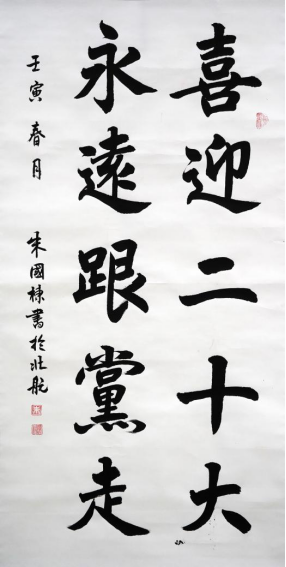 喜迎二十大
永遠跟黨走
壬寅春月
朱國棟書於壯航